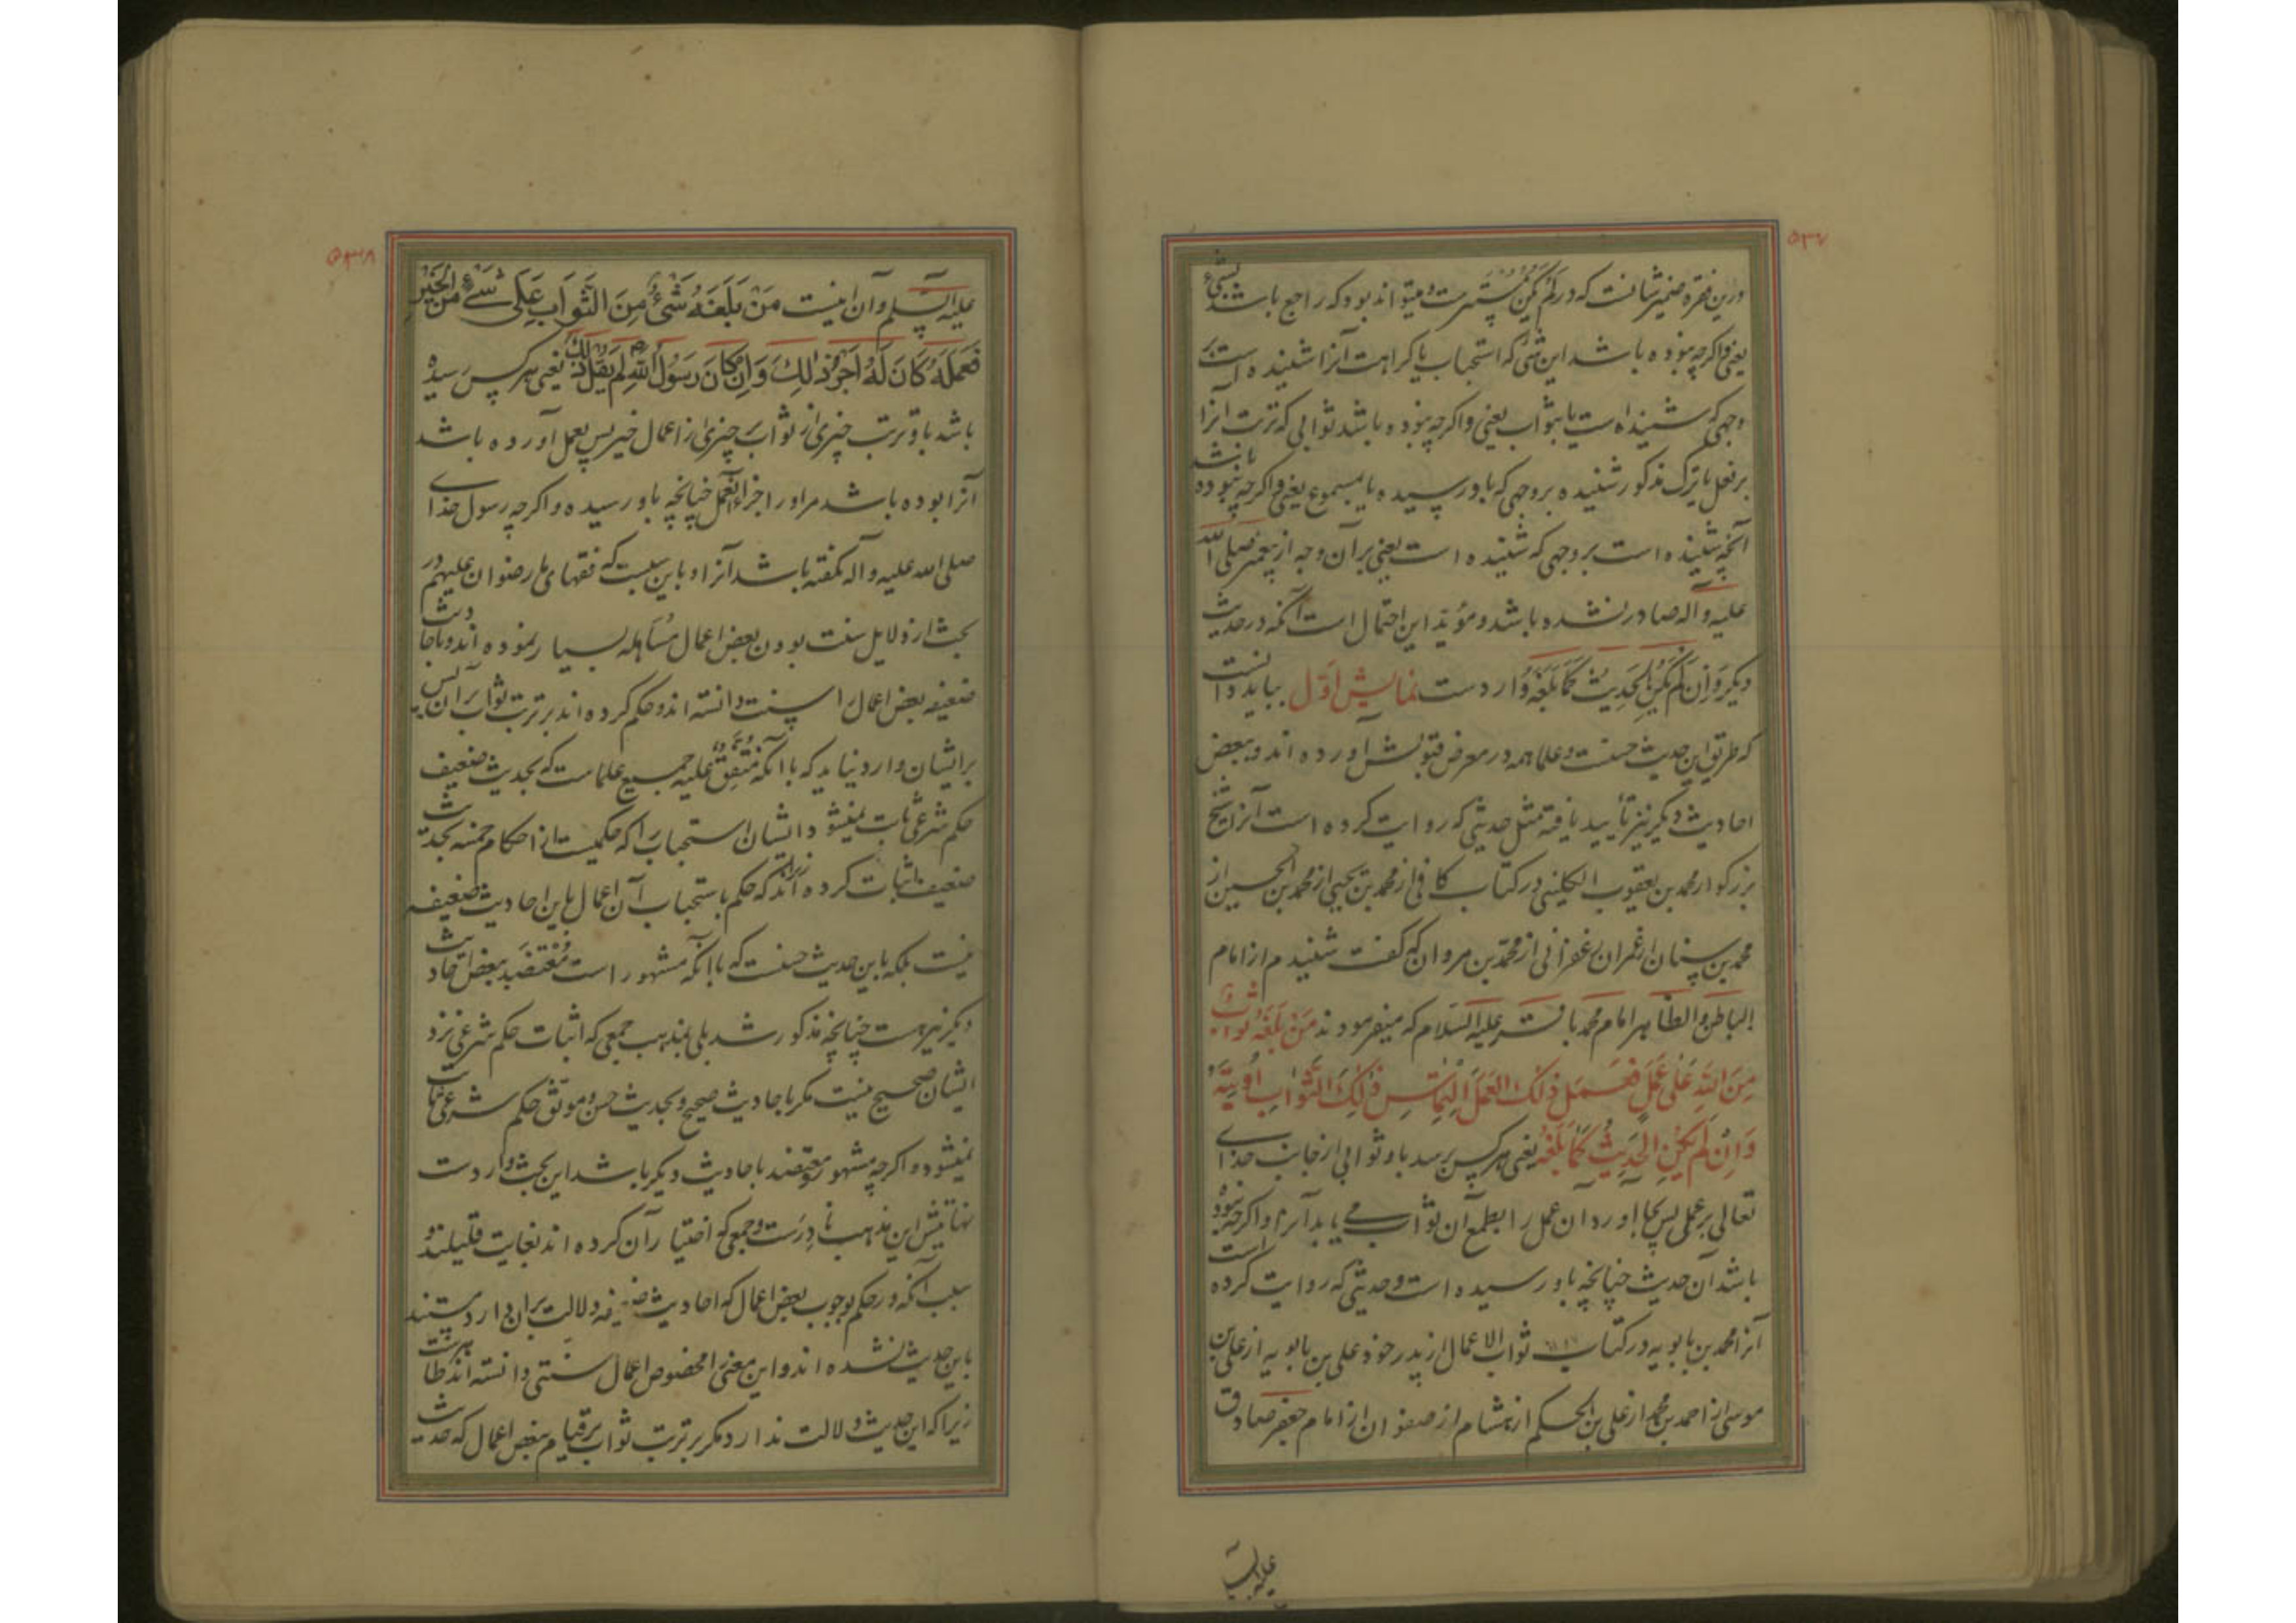 ۵۳۷
درین فقره ضمیر شانست که در لم یکن مستترست و میتواند بود که راجع باشد بشیء
یعنی و اگر چه نبوده باشد این شیء که استحباب یا کراهت آنرا شنیده است بر
وجهی که شنیده است یا بثواب یعنی و اگر چه نبوده باشد ثوابی که ترتب آنرا
بر فعل یا ترک مذکور شنیده بر وجهی که باو رسیده یا بمسموع یعنی و اگر چه نبوده باشد
آنچه شنیده است بر وجهی که شنیده است یعنی بر آن وجه از پیغمبر صلی الله
علیه و آله صادر نشده باشد و مؤید این احتمال است آنکه در حدیث
دیگر وَاِن لَم یَکُنِ الحَدِیثُ کَمَا بَلَغَهُ وارد است نمایش اوّل بباید دانست
که طریق این حدیث حسنست و علما همه در معرض قبولش آورده اند و ببعض
احادیث دیگر نیز تأیید یافته مثل حدیثی که روایت کرده است آنرا شیخ
بزرکوار محمد بن یعقوب الکلینی در کتاب کافی از محمد بن یحیی از محمد بن الحسین از
محمد بن سنان از عمران زعفرانی از محمد بن مروان که گفت شنیدم از امام
الباطن و الظاهر امام محمد باقر علیه السلام که میفرمودند مَن بَلَغَهُ ثَوابٌ
مِنَ اللهِ عَلی عَمَلٍ فَعَمِلَ ذلِکَ العَمَلَ التِماسَ ذلِکَ الثَّوابِ اُوتِیَهُ
وَاِن لَم یَکُنِ الحَدِیثُ کَما بَلَغَهُ یعنی هر کس برسد باو ثوابی از جانب خدای
تعالی بر عملی پس بجا آورد آن عمل را بطمع آن ثواب می یابد آنرا و اگر چه نبوده
باشد آن حدیث چنانچه باو رسیده است و حدیثی که روایت کرده است
آنرا محمد بن بابویه در کتاب ثواب الاعمال از پدر خود علی بن بابویه از علی بن
موسی از احمد بن محمد از علی بن الحکم از هشام از صفوان از امام جعفر صادق
علیه السلم
۵۳۸
علیه السلم و آن اینست مَن بَلَغَهُ شَیءٌ مِنَ الثَّوابِ عَلی شَیءٍ مِنَ الخَیرِ
فَعَمِلَهُ کانَ لَهُ اَجرُ ذلِکَ وَاِن کانَ رَسُولُ اللهِ لَم یَقُل ذلِکَ یعنی هر کس رسیده
باشد باو ترتب چیزی از ثواب بر چیزی از اعمال خیر پس بعمل آورده باشد
آنرا بوده باشد مر او را جزای آنعمل چنانچه باو رسیده و اگر چه رسول خدای
صلی الله علیه و آله نگفته باشد آنرا و باین سببست که فقهای ما رضوان علیهم در
بحث از دلایل سنت بودن بعض اعمال مساهله بسیار نموده اند و باحادیث
ضعیفه بعض اعمال را سنت دانسته اند و حکم کرده اند بر ترتب ثواب بر آن پس
بر ایشان وارد نیاید که با آنکه متفق علیه جمیع علماست که بحدیث ضعیف
حکم شرعی ثابت نمیشود ایشان استحباب را که حکمیست از احکام خمسه بحدیث
ضعیف اثبات کرده اند زیرا که حکم باستحباب آن اعمال باین احادیث ضعیفه
نیست بلکه باین حدیث حسنست که با آنکه مشهور است معتضد ببعض احادیث
دیگر نیز هست چنانچه مذکور شد بلی بمذهب جمعی که اثبات حکم شرعی نزد
ایشان صحیح نیست مگر باحادیث صحیح و بحدیث حسن و موثق حکم شرعی ثابت
نمیشود و اگر چه مشهور و معتضد باحادیث دیگر باشد این بحث وارد است
نهایتش این مذهب نادرست و جمعی که اختیار آن کرده اند بغایت قلیلند و
سبب آنکه در حکم بوجوب بعض اعمال که احادیث ضعیفه دلالت بران دارد مستند
باین حدیث نشده اند و این معنی را مخصوص اعمال سنتی دانسته اند ظاهرست
زیرا که این حدیث دلالت ندارد مگر بر ترتب ثواب بر قیام ببعض اعمال که حدیث